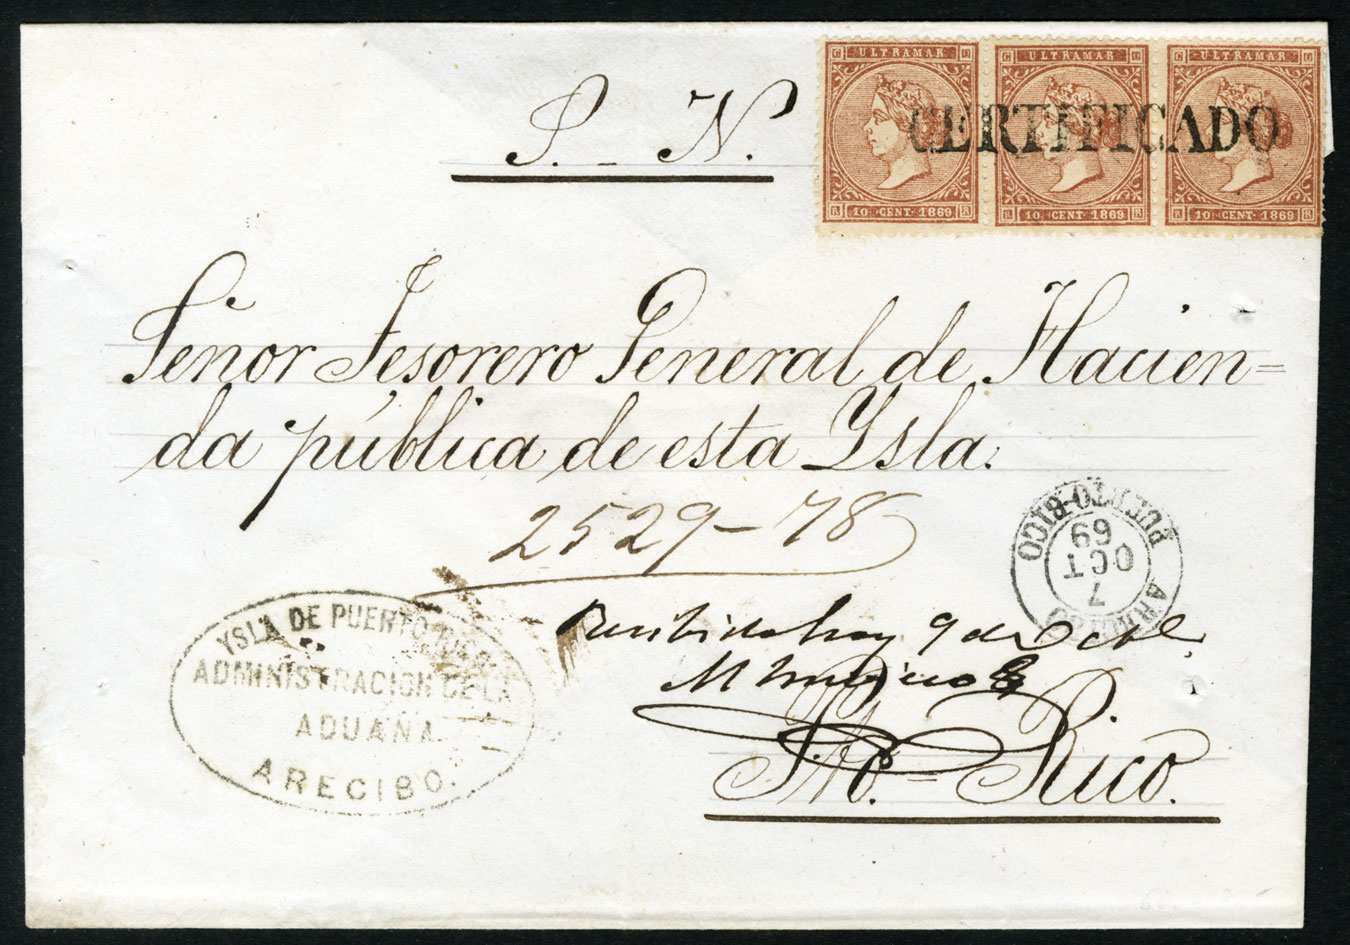 S. - N.
ULTRAMAR ULTRAMAR ULTRAMAR
CERTIFICADO
10 CENT. 1869 10 CENT. 1869 10 CENT. 1869
Señor Tesorero General de Hacien=
da pública de esta Ysla.
2529-78
PUERTO-RICO
7
OCT
69
Recibido hoy 9 de Octbe
YSLA DE PUERTO RICO
ADMINISTRACION DE LA
ADUANA
ARECIBO.
Pto.=Rico.